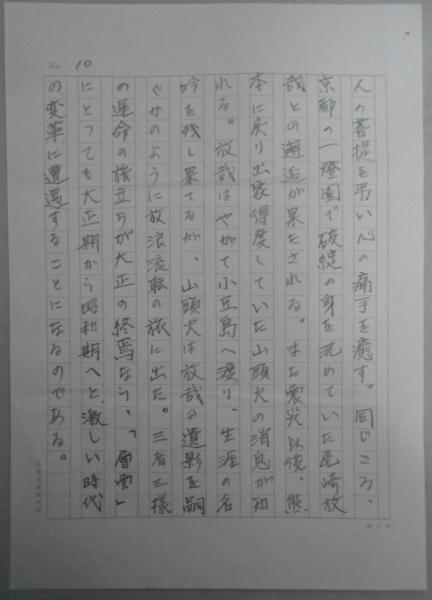 No. 10
人の菩提を弔い心の痛手を癒す。同じころ、
京都の一燈園で破綻の身を沈めていた尾崎放
哉との邂逅が果たされる。また震災以後、熊
本に戻り出家得度していた山頭火の消息が知
れる。放哉はやがて小豆島へ渡り、生涯の名
吟を残し果てるが、山頭火は放哉の遺影を嗣
ぐかのように放浪流転の旅に出た。三者三様
の運命の旅立ちが大正の終焉なら、「層雲」
にとっても大正期から昭和期へと、激しい時代
の変革に遭遇することになるのである。